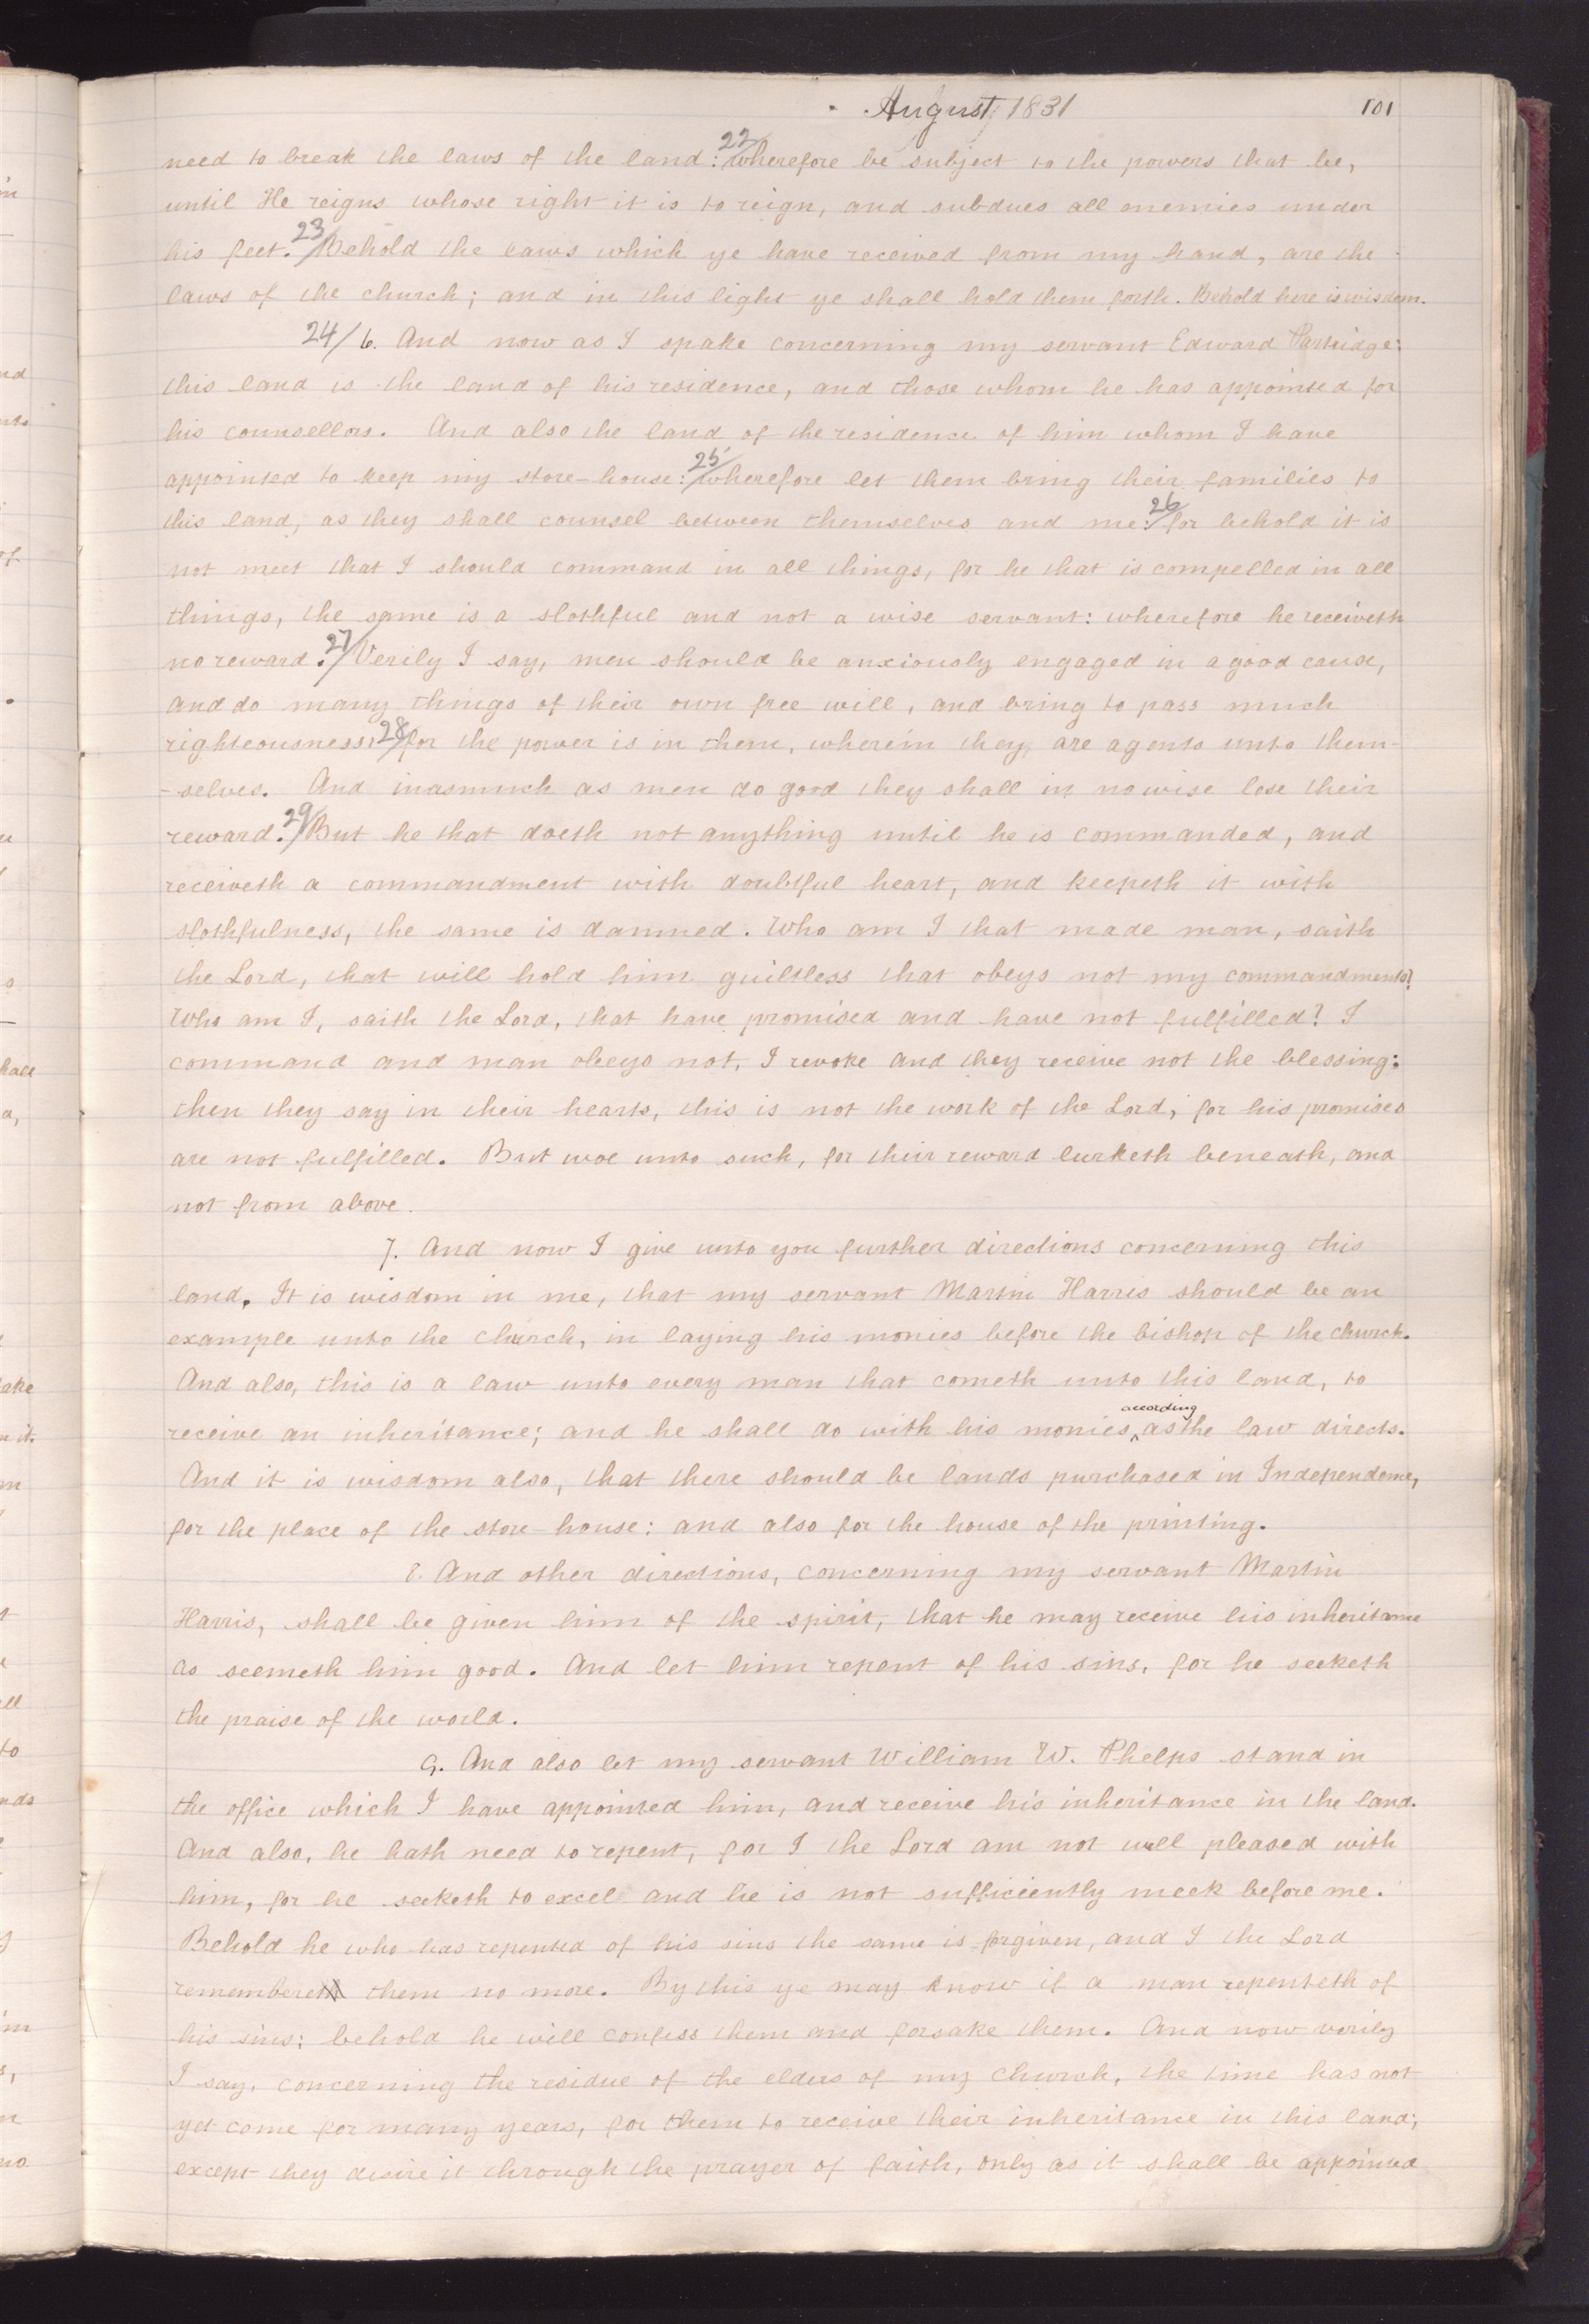 August 1831
101
need to break the laws of the land: 22/ wherefore be subject to the powers that be,
until He reigns whose right it is to reign, and subdues all enemies under
his feet. 23/ Behold the laws which ye have received from my hand, are the
laws of the church; and in this light ye shall hold them forth. Behold here is wisdom.
24/ 6. And now as I spake concerning my servant Edward Partridge:
this land is the land of his residence, and those whom he has appointed for
his counsellors. And also the land of the residence of him whom I have
appointed to keep my store-house: 25/ wherefore let them bring their families to
this land, as they shall counsel between themselves and me: 26/ for behold it is
not meet that I should command in all things, for he that is compelled in all
things, the same is a slothful and not a wise servant: wherefore he receiveth
no reward. 27/ Verily I say, men should be anxiously engaged in a good cause,
and do many things of their own free will, and bring to pass much
righteousness: 28/ for the power is in them, wherein they are agents unto them-
-selves. And inasmuch as men do good they shall in nowise lose their
reward. 29/ But he that doeth not anything until he is commanded, and
receiveth a commandment with doubtful heart, and keepeth it with
slothfulness, the same is damned. Who am I that made man, saith
the Lord, that will hold him guiltless that obeys not my commandments?
Who am I, saith the Lord, that have promised and have not fulfilled? I
command and man obeys not, I revoke and they receive not the blessing:
then they say in their hearts, this is not the work of the Lord, for his promises
are not fulfilled. But woe unto such, for their reward lurketh beneath, and
not from above.
7. And now I give unto you further directions concerning this
land. It is wisdom in me, that my servant Martin Harris should be an
example unto the church, in laying his monies before the bishop of the church.
And also, this is a law unto every man that cometh unto this land, to
receive an inheritance; and he shall do with his monies ^according as the law directs.
And it is wisdom also, that there should be lands purchased in Independence,
for the place of the store-house: and also for the house of the printing.
8. And other directions, concerning my servant Martin
Harris, shall be given him of the spirit, that he may receive his inheritance
as seemeth him good. And let him repent of his sins, for he seeketh
the praise of the world.
9. And also let my servant William W. Phelps stand in
the office which I have appointed him, and receive his inheritance in the land.
And also, he hath need to repent, for I the Lord am not well pleased with
him, for he seeketh to excel and he is not sufficiently meek before me.
Behold he who has repented of his sins the same is forgiven, and I the Lord
remembereth them no more. By this ye may know if a man repenteth of
his sins: behold he will confess them and forsake them. And now verily
I say, concerning the residue of the elders of my church, the time has not
yet come for many years, for them to receive their inheritance in this land;
except they desire it through the prayer of faith, only as it shall be appointed